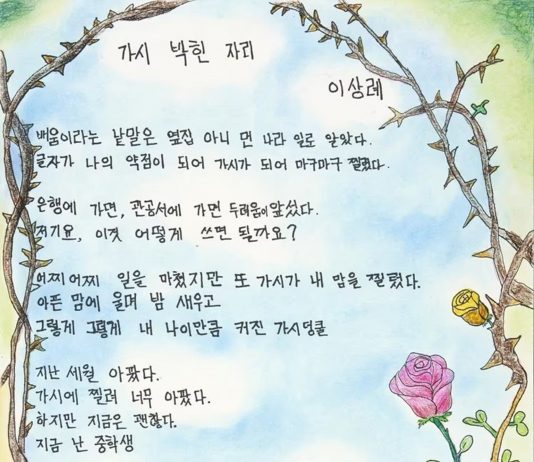 가시 박힌 자리
이상례
배움이라는 낱말은 옆집 아니 먼 나라 일로 알았다.
글자가 나의 약점이 되어 가시가 되어 마구마구 찔렀다.
은행에 가면, 관공서에 가면 두려움이 앞섰다.
저기요, 이것 어떻게 쓰면 될까요?
어찌어찌 일을 마쳤지만 또 가시가 내 맘을 찔렀다.
아픈 맘에 울며 밤 새우고
그렇게 그렇게 내 나이만큼 커진 가시덩쿨
지난 세월 아팠다.
가시에 찔려 너무 아팠다.
하지만 지금은 괜찮다.
지금 난 중학생